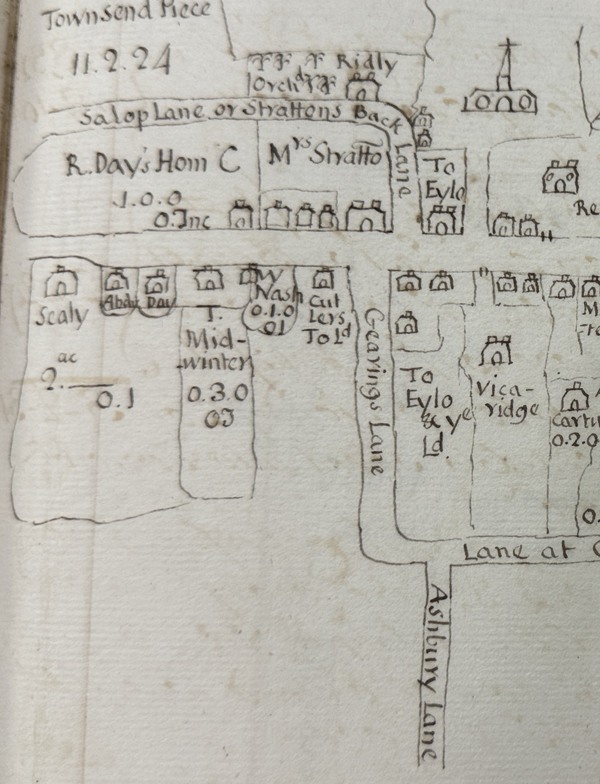 Townsend Piece
11.2.24
Ridly
Orchd
Salop Lane or Strattons Back Lane
R. Day's Hom C
1.0.0
0.Inc
Mrs Stratto
To
Eylo
Re
Scaly
ac
2.—
0.1
Abdy
Day
T.
Mid-
winter
0.3.0
OJ
W
Nash
0.1.0
OJ
Cut
lers
To Ld
Gearings Lane
To
Eylo
& ye
Ld.
Vica-
ridge
Cartu
0.2.0
0.
Lane at
Ashbury Lane